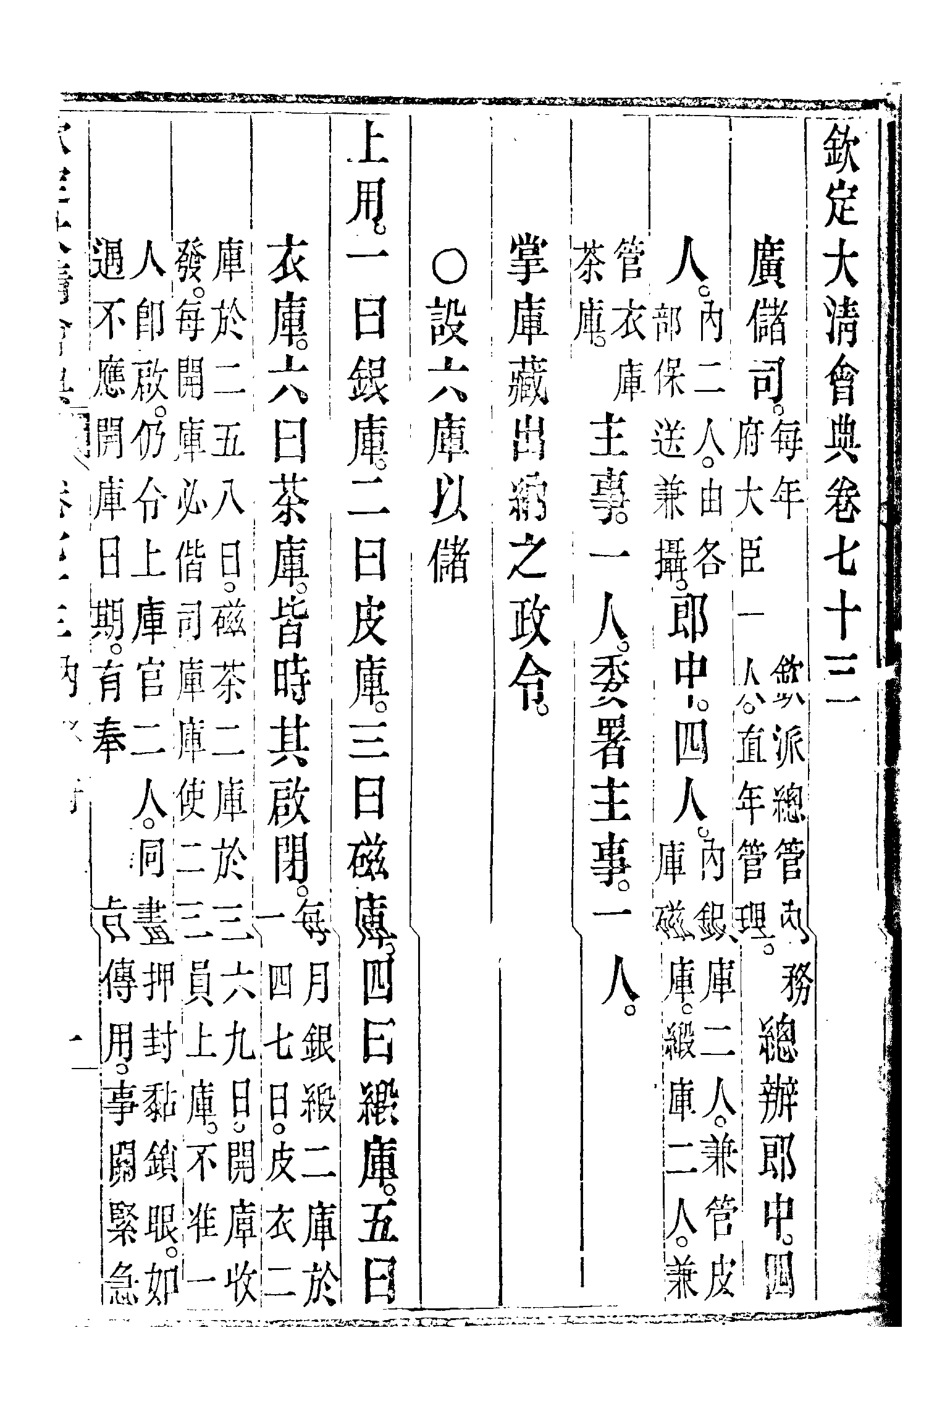 欽定大清會典卷七十三
廣儲司。每年欽派總管內務府大臣一人。直年管理。總辦郎中。四
人。內二人。由各部保送兼攝。郎中。四人。內銀庫二人。兼管皮庫磁庫。緞庫二人。兼
管衣庫茶庫。主事。一人。委署主事。一人。
掌庫藏出納之政令。
○設六庫以儲
上用。一曰銀庫。二曰皮庫。三曰磁庫。四曰緞庫。五曰
衣庫。六曰茶庫。皆時其啟閉。每月銀緞二庫於一四七日。皮衣二
庫於二五八日。磁茶二庫於三六九日。開庫收發。每開庫必偕司庫庫使二三員上庫。不准一
人卽啟。仍令上庫官二人。同畫押封黏鎖眼。如遇不應開庫日期。有奉旨傳用。事關緊急